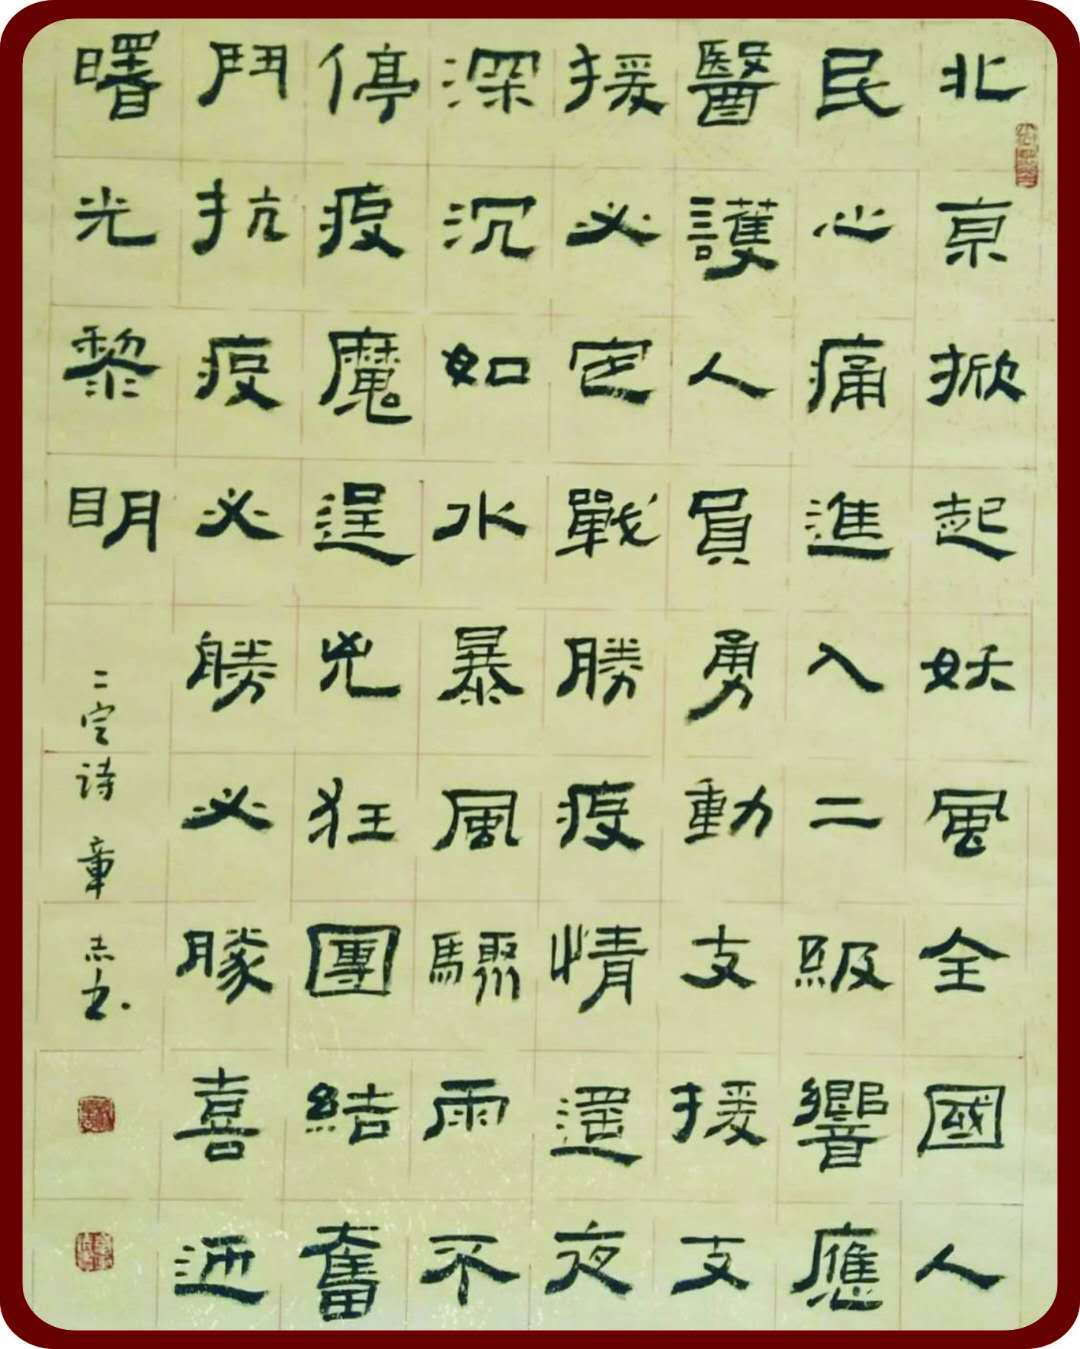 北京掀起妖風全國人
民心痛進入二級響應
醫護人員勇動支援支
援必定戰勝疫情遥夜
深沉如水暴風驟雨不
停疫魔逞兇狂團結奮
鬥抗疫必勝必勝喜迎
曙光黎明
二詩 章志书